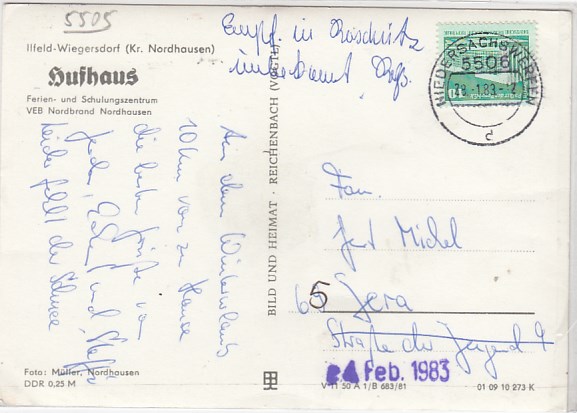 5505
Empf. in Roschütz
unbekannt
Ilfeld-Wiegersdorf (Kr. Nordhausen)
Hufhaus
Ferien- und Schulungszentrum
VEB Nordbrand Nordhausen
Aus dem Winterurlaub
10 km von zu Hause
die besten Grüße von
und Steffi
Leider fehlt der Schnee
Foto: Müller, Nordhausen
DDR 0,25 M
BILD UND HEIMAT · REICHENBACH (VOGTL)
NIEDERSACHSWERFEN
5506
28.-1.83-
d
Fam.
Gert Michel
5
Gera
Straße der Jugend 9
Feb. 1983
V 11 50 A 1/B 683/81
01 09 10 273 K